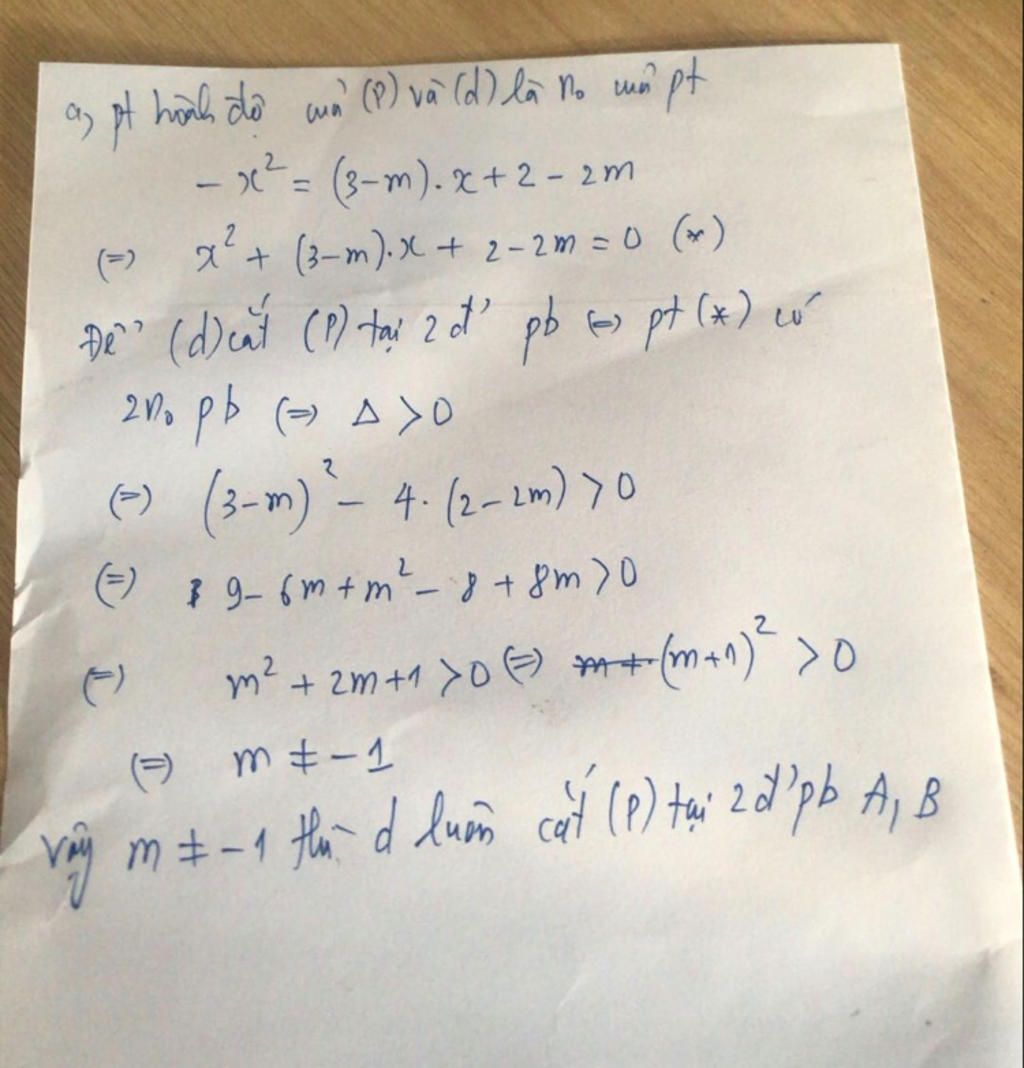 a, pt hoành độ của (P) và (d) là n₀ của pt
- x² = (3-m).x + 2 - 2m
(=) x² + (3-m).x + 2-2m = 0 (*)
Để (d) cắt (P) tại 2 đ' pb (=) pt (*) có
2n₀ pb (=) Δ > 0
(=) (3-m)² - 4.(2-2m) > 0
(=) 9- 6m + m² - 8 + 8m > 0
(=) m² + 2m+1 > 0 (=) (m+1)² > 0
(=) m ≠ -1
Vậy m ≠ -1 thì d luôn cắt (P) tại 2 đ' pb A, B